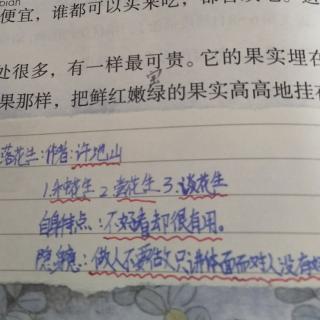 bian
便宜,谁都可以买来吃,都喜欢吃。这
处很多,有一样最可贵。它的果实埋在
宝
果那样,把鲜红嫩绿的果实高高地挂
落花生:作者:许地山
1.种花生 2 尝花生 3.谈花生
自身特点:不好看却很有用。
做人不要做只讲体面而对人没有